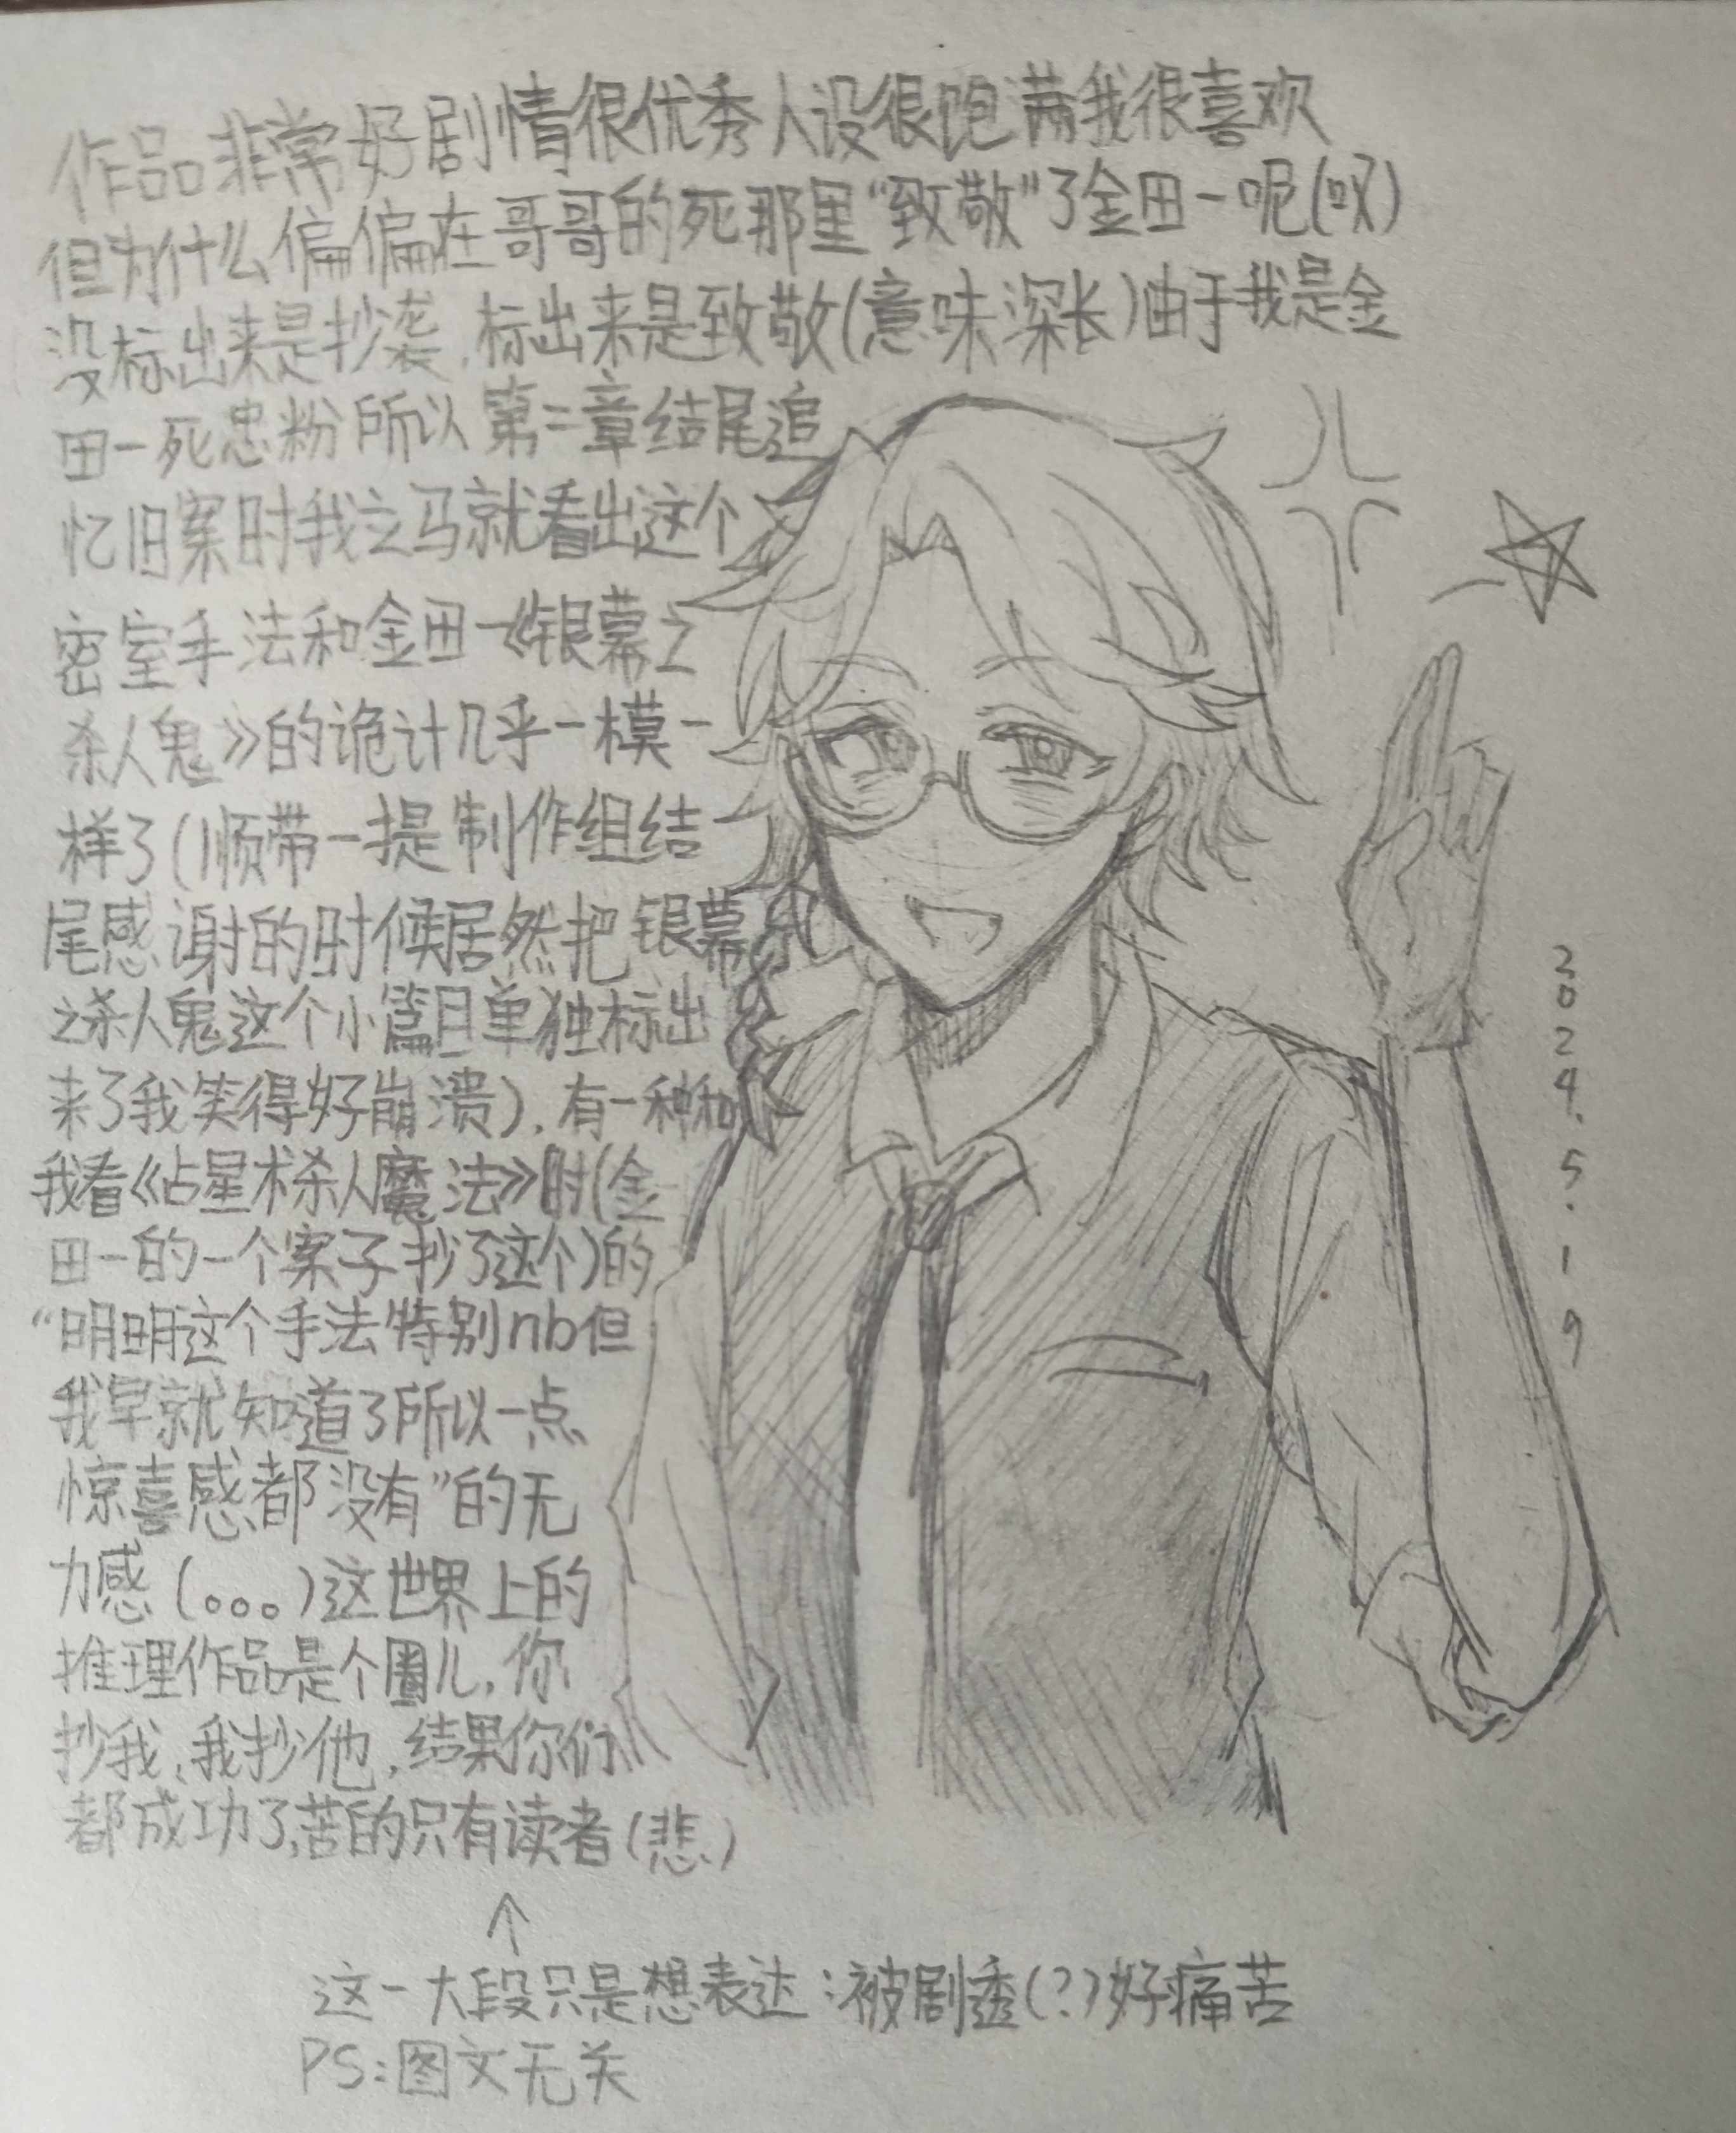 作品非常好剧情很优秀人设很饱满我很喜欢
但为什么偏偏在哥哥的死那里“致敬”了金田一呢(叹)
没标出来是抄袭,标出来是致敬(意味深长)由于我是金
田一死忠粉所以第二章结尾追
忆旧案时我立马就看出这个
密室手法和金田一《银幕之
杀人鬼》的诡计几乎一模一
样了(顺带一提制作组结
尾感谢的时候居然把银幕
之杀人鬼这个小篇目单独标出
来了我笑得好崩溃),有一种和
我看《占星术杀人魔法》时(金
田一的一个案子抄了这个)的
“明明这个手法特别nb但
我早就知道了所以一点
惊喜感都没有”的无
力感(。。。)这世界上的
推理作品是个圈儿,你
抄我、我抄他,结果你们
都成功了,苦的只有读者(悲)
↑
这一大段只是想表达:被剧透(?)好痛苦
PS:图文无关
2024.5.19